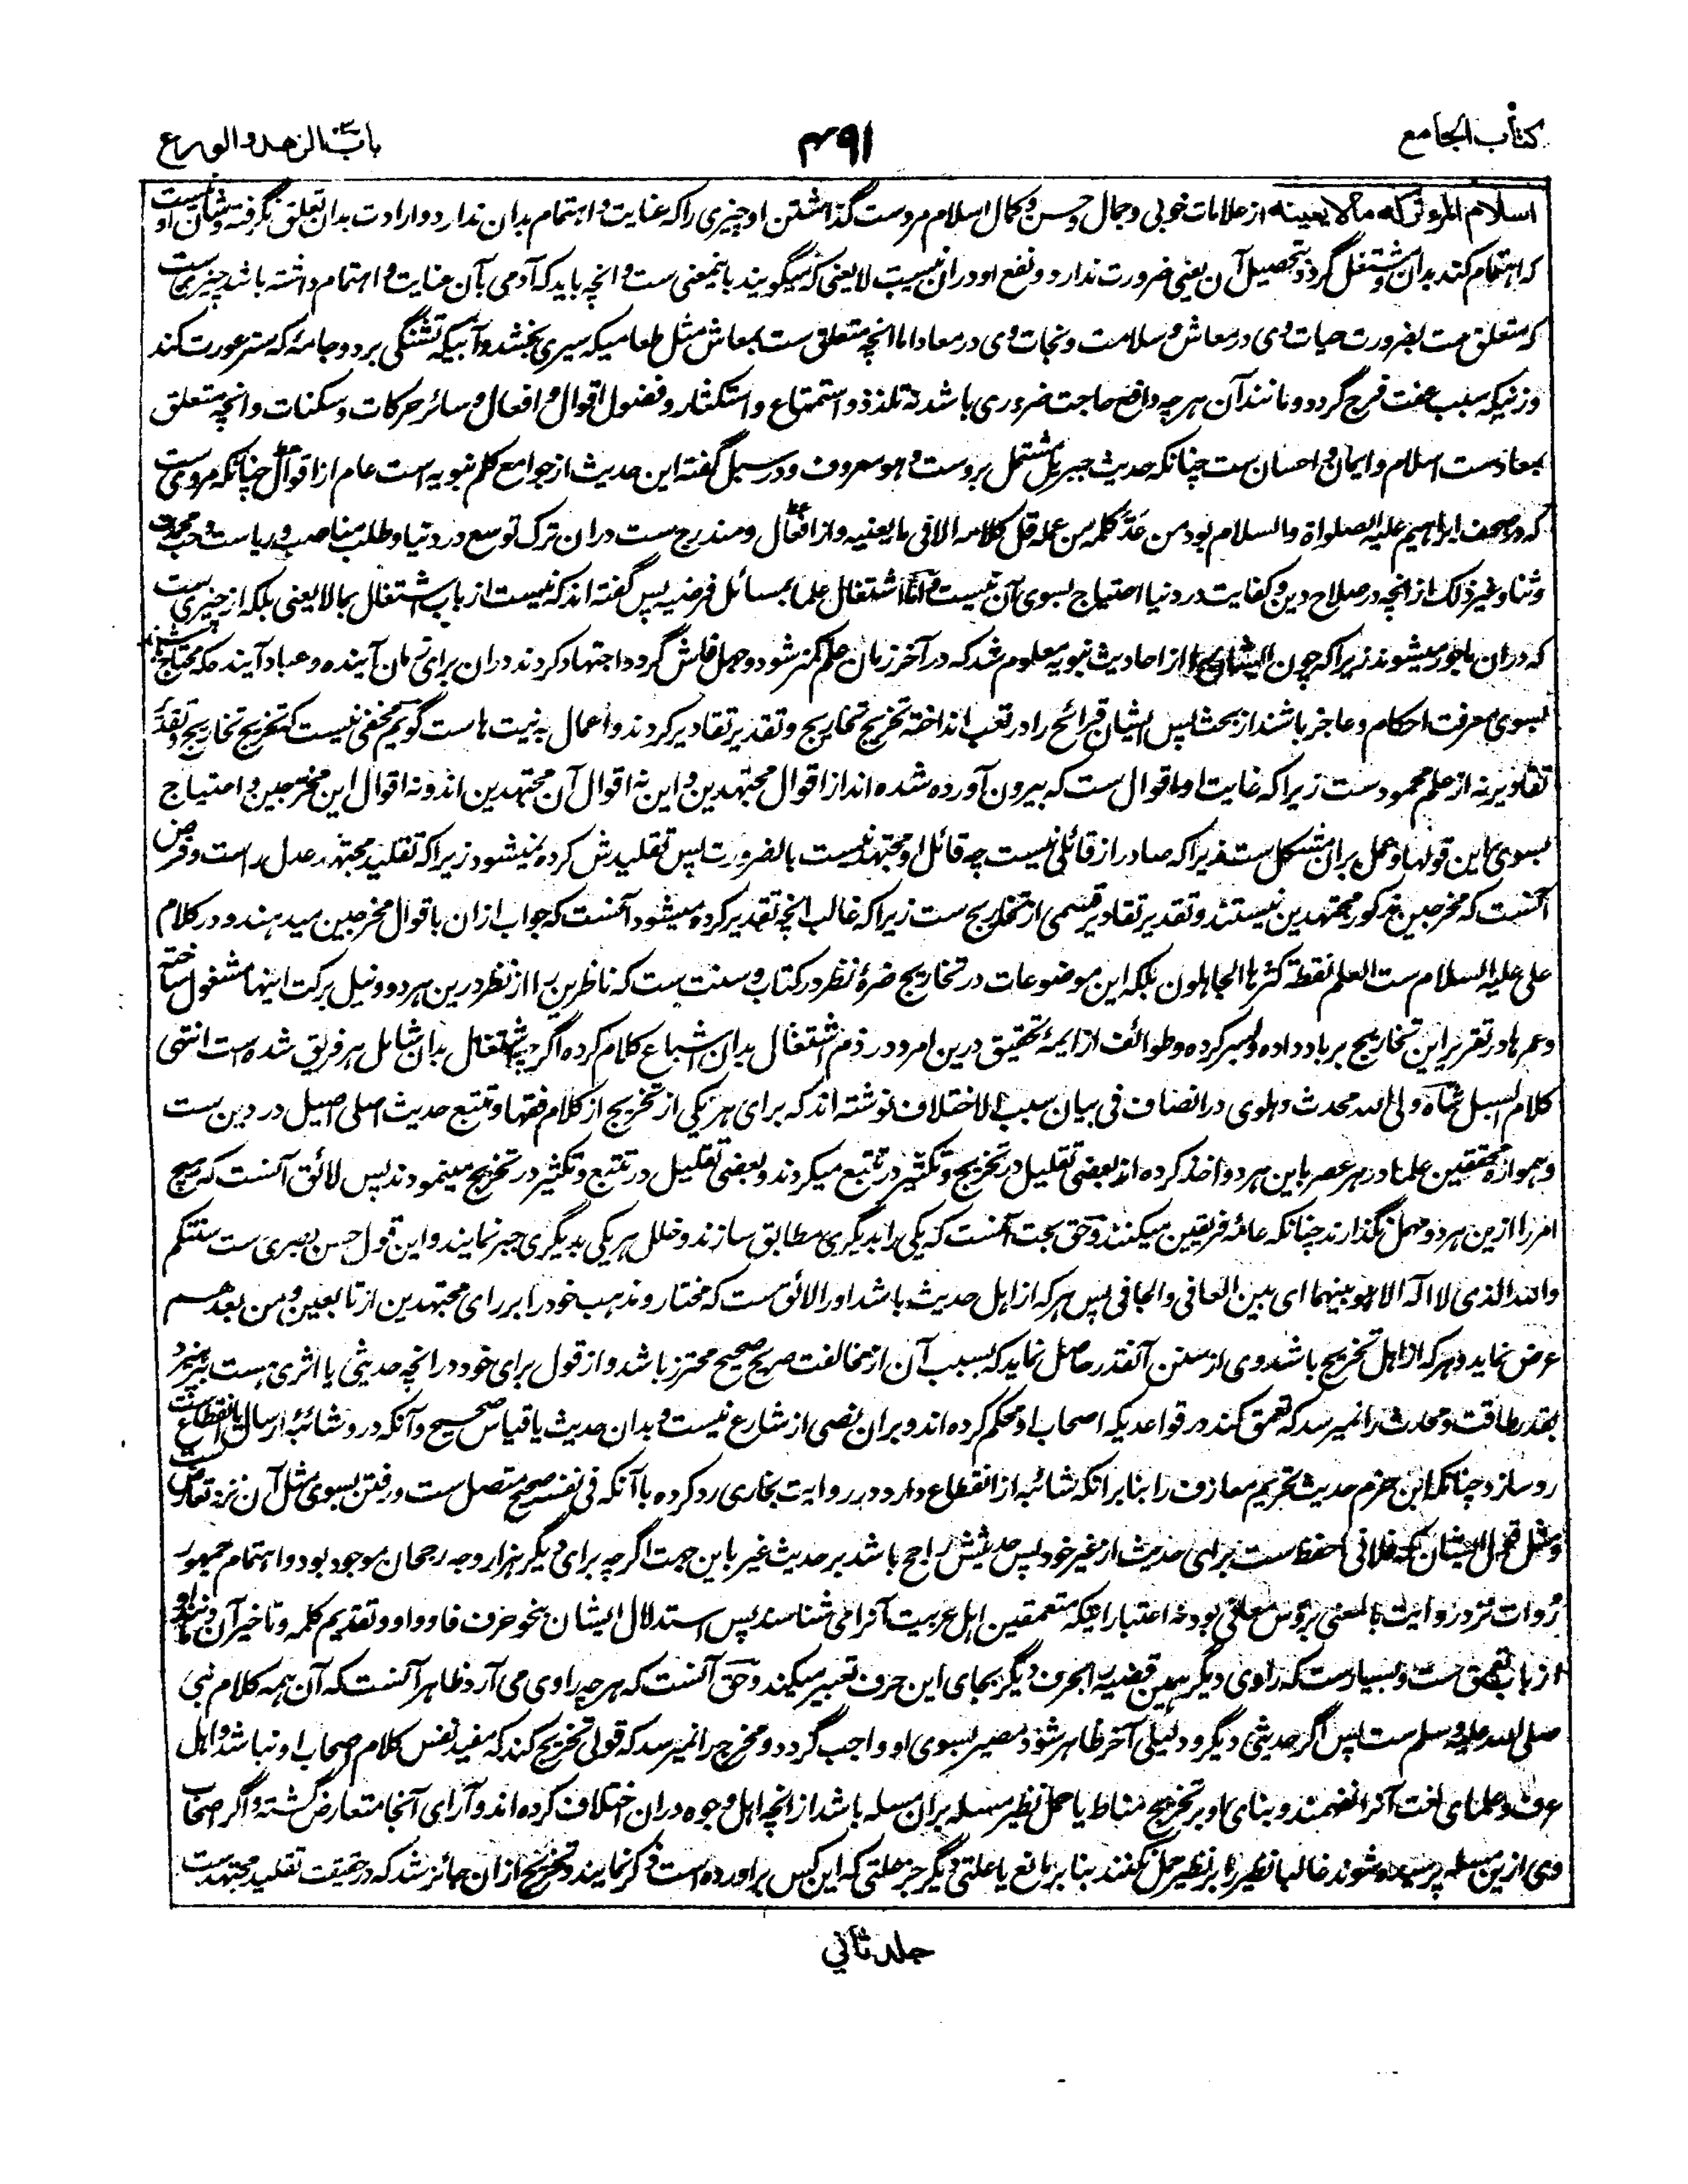 کتاب الجامع ۴۹۱ باب الزهد والورع
اسلام المرء ترکه ما لا یعنیه از علامات خوبی و جمال و حسن و کمال اسلام مرد ست گذاشتن او چیزی را که عنایت و اہتمام بدان ندارد و ارادت بدان تعلق نگرفته و شان او نیست
که اہتمام کند بدان و مشتغل گردد و تحصیل آن یعنی ضرورت ندارد و نفع او دران نیست لا یعنی که میگویند باینمعنی ست و انچه باید که آدمی بآن عنایت و اہتمام داشته باشد چیزیست
که متعلق ست بضرورت حیات وی در معاش و سلامت و نجات وی در معاد اما انچه متعلق ست بمعاش مثل طعامیکه سیری بخشد و آبیکه تشنگی برد و جامۂ که ستر عورت کند
و زنیکه سبب عفت فرج گردد و مانند آن هرچه دافع حاجت ضروری باشد نه تلذذ و استمتاع و استکثار و فضول اقوال و افعال و سائر حرکات و سکنات و انچه متعلق
بمعادست اسلام و ایمان و احسان ست چنانکه حدیث جبریل مشتمل بروست و هو معروف و در سبل گفته این حدیث از جوامع کلم نبویه است عام از اقوال چنانکه مروی ست
که در صحف ابراہیم علیه الصلواة والسلام بود من عدّ کلمه من عمله قل کلامه الا فی ما یعنیه و از افعال و مندرج ست دران ترک توسع در دنیا و طلب مناصب و ریاست و حب محمدت
و ثنا و غیر ذلک از انچه در صلاح دین و کفایت در دنیا احتیاج بسوی آن نیست و اما اشتغال علما بمسائل فرضیه پس گفته اند که نیست از باب اشتغال بما لا یعنی بلکه از چیزی ست
که دران ماجور میشوند زیرا که چون ایشان را از احادیث نبویه معلوم شد که در آخر زمان علم کمتر شود و جهل فاش گردد اجتهاد کردند دران برای زمان آینده و عباد آینده که محتاج باشند
بسوی معرفت احکام و عاجز باشند از بحث پس ایشان قرائح را در تعب انداخته تخریج تخاریج و تقدیر تقادیر کردند و اعمال به نیت هاست گویم مخفی نیست که تخریج تخاریج و تقدیر
تقادیر نه از علم محمود ست زیرا که غایت او اقوال ست که بیرون آورده شده اند از اقوال مجتهدین و این نه اقوال آن مجتهدین اند و نه اقوال این مخرجین و احتیاج
بسوی این قولها و عمل بران مشکل ست زیرا که صادر از قائلی نیست چه قائل او مجتهد نیست بالضرورت پس تقلیدش کرده نمیشود زیرا که تقلید مجتهد عدل راست و فرض
آنست که مخرجین مذکور مجتهدین نیستند و تقدیر تقادیر قسمی از تخاریج ست زیرا که غالب انچه تقدیر کرده میشود آنست که جواب ازان باقوال مخرجین میدهند و در کلام
علی علیه السلام ست العلم نقطة کثرها الجاهلون بلکه این موضوعات در تخاریج ضرۂ نظر در کتاب و سنت ست که ناظرین را از نظر درین هر دو و نیل برکت اینها مشغول ساخته
و عمرها در تقریر این تخاریج برباد داده و بسر کرده و طوائف از ایمۂ تحقیق درین امر و در ذم اشتغال بدان اشباع کلام کرده اگرچه اشتغال بدان شامل هر فریق شده است انتهی
کلام السبل شاه ولی الله محدث دهلوی در انصاف فی بیان سبب الاختلاف نوشته اند که برای هر یکی از تخریج از کلام فقها و تتبع حدیث اصلی اصیل در دین ست
و همواره محققین علما در هر عصر باین هر دو اخذ کرده اند بعضی تقلیل در تخریج و تکثیر در تتبع میکردند و بعضی تقلیل در تتبع و تکثیر در تخریج مینمودند پس لائق آنست که هیچ
امر را ازین هر دو مهمل نگذارند چنانکه عامۂ فریقین میکنند و حق بحت آنست که یکی را بدیگری مطابق سازند و خلل هر یکی بدیگری جبر نمایند و این قول حسن بصری ست سنتکم
والله الذی لا اله الا هو بینهما ای بین الغالی والجافی پس هر که از اهل حدیث باشد او را لائق ست که مختار و مذهب خود را بر رای مجتهدین از تابعین و من بعدهم
عرض نماید و هر که از اهل تخریج باشد وی از سنن آنقدر حاصل نماید که بسبب آن از مخالفت صریح صحیح محترز باشد و از قول برای خود در انچه حدیثی یا اثری هست بپرهیزد
بقدر طاقت و محدث را نمیرسد که تعمق کند در قواعدیکه اصحاب او محکم کرده اند و بران نصی از شارع نیست و بدان حدیث یا قیاس صحیح و آنکه درو شائبۂ ارسال یا انقطاع ست
رو سازد چنانکه ابن حزم حدیث تحریم معازف را بنا برانکه شائبه از انقطاع دارد در روایت بخاری رد کرده باآنکه فی نفسه صحیح متصل ست و رفتن بسوی مثل آن نزد تعارض ست
و مثل قول ایشان که فلانی احفظ ست برای حدیث از غیر خود پس حدیثش راجح باشد بر حدیث غیر باین جهت اگرچه برای دیگر هزار وجه رجحان موجود بود و اهتمام جمهور
روات نزد روایت بالمعنی برؤس معانی بود نه اعتباراتیکه متعمقین اهل عربیت آنرا می شناسند پس استدلال ایشان بنحو حرف فا و واو و تقدیم کلمه و تاخیر آن و مانند او
از باب تعمق ست و بسیارست که راوی دیگر همین قضیه را بحرف دیگر بجای این حرف تعبیر میکند و حق آنست که هرچه راوی می آرد ظاهر آنست که آن همه کلام نبی
صلی الله علیه وسلم ست پس اگر حدیثی دیگر و دلیلی آخر ظاهر شود مصیر بسوی او واجب گردد و مخرج را نمیرسد که قولی تخریج کند که مفید نفس کلام اصحاب او نباشد و اهل
عرف و علمای لغت آنرا نفهمند و بنای او بر تخریج مناط یا حمل نظیر مسئله بران مسئله باشد از انچه اهل وجوه دران اختلاف کرده اند و آرای آنجا متعارض گشته و اگر اصحاب
وی ازین مسئله پرسیده شوند غالبا نظیر را بر نظیر حمل نکنند بنا بر مانع یا علتی دیگر جز علتی که این کس برآورده است ذکر نمایند و تخریج ازان جائز شد که در حقیقت تقلید مجتهد ست
جلد ثانی